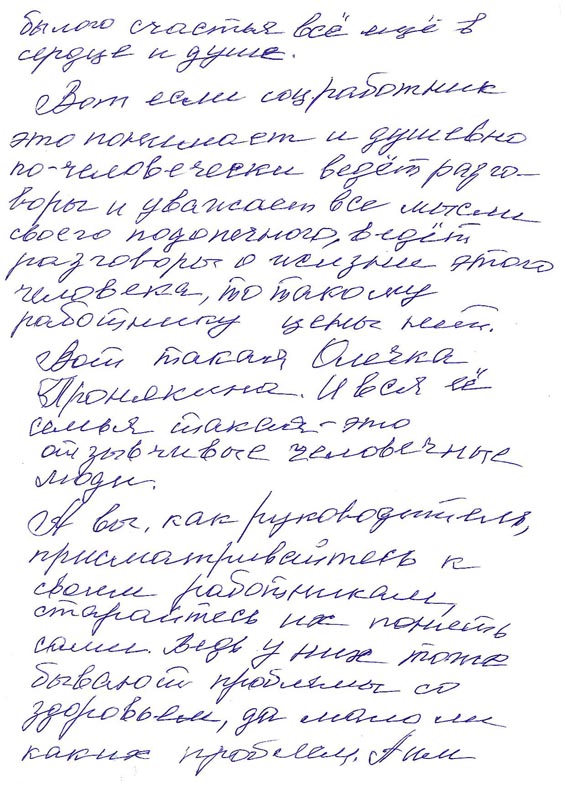 былого счастья всё ещё в
сердце и душе.
Вот если соцработник
это понимает и душевно
по-человечески ведёт разго-
воры и уважает все мысли
своего подопечного, ведёт
разговоры о жизни этого
человека, то такому
работнику цены нет.
Вот такая Олечка
Пронякина. И вся её
семья такая - это
отзывчивые человечные
люди.
А вы, как руководитель,
присматривайтесь к
своим работникам,
старайтесь их понять
сами. Ведь у них тоже
бывают проблемы со
здоровьем, да мало ли
каких проблем. А им